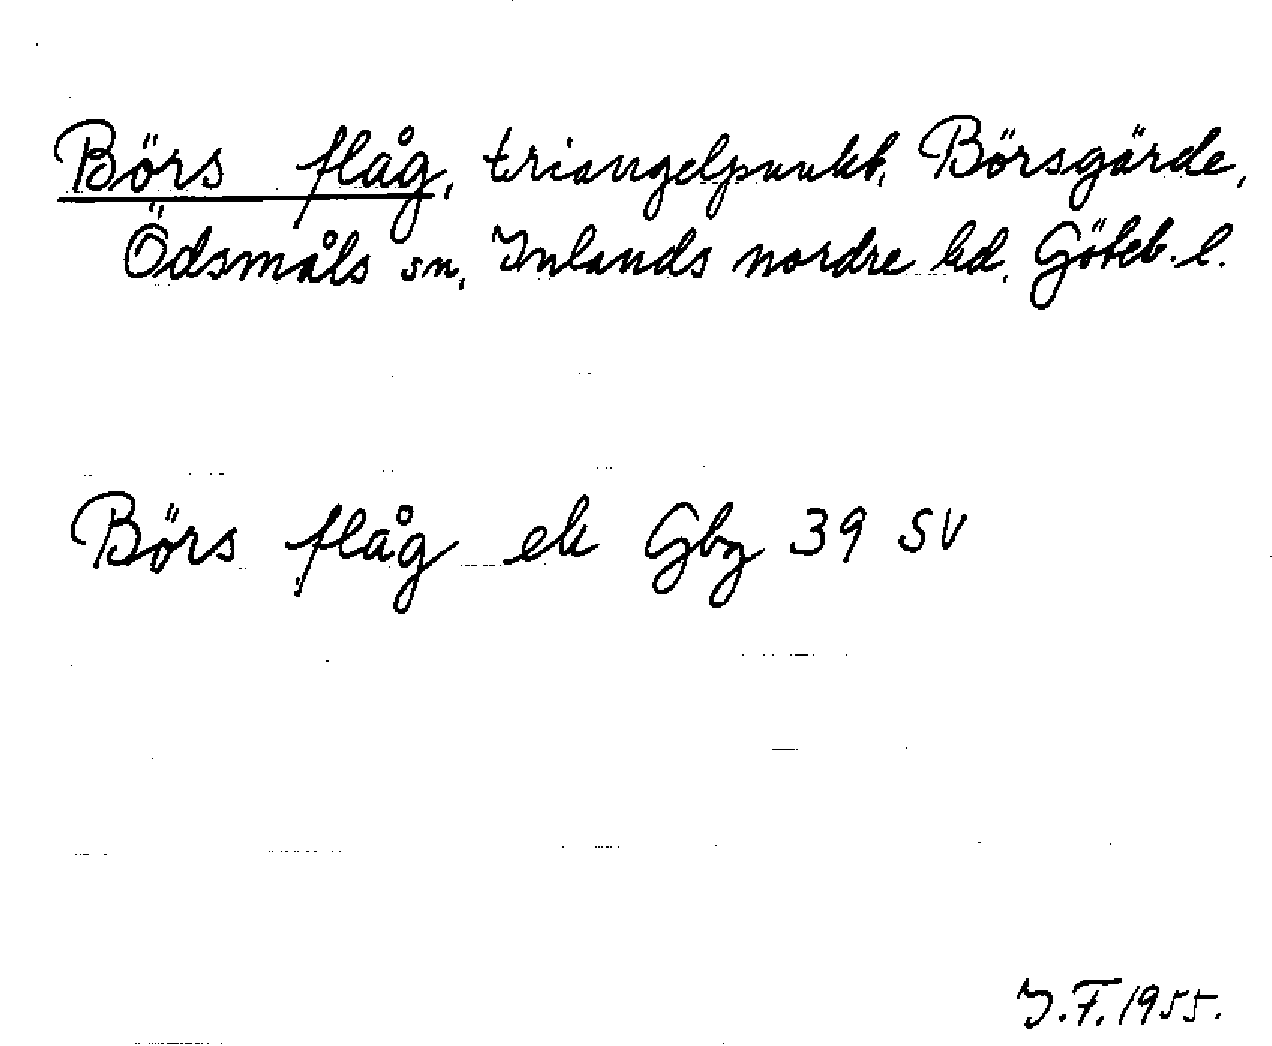 Börs flåg, triangelpunkt, Börsgärde,
Ödsmåls sn, Inlands nordre hd, Göteb. l.
Börs flåg ek Gbg 39 SV
I.F. 1955.